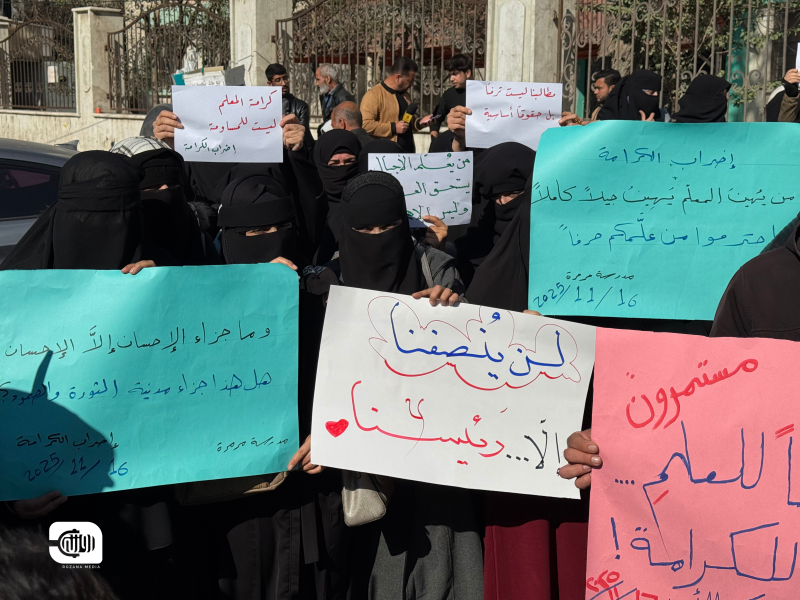 كرامة المعلم
ليست للمساومة
إضراب الكرامة
مطالبنا ليست ترفاً
بل حقوقاً أساسية
من يُعلم الأجيال
يستحق
وليس
إضراب الكرامة
من يُهين المعلّم يُهين جيلاً كاملاً
احترموا من علّمكم حرفاً
مدرسة مرمرة
2025/11/16
وما جزاء الإحسان إلاَّ الإحسان
هل هذا جزاء مدينة الثورة والصمود؟
مدرسة مرمرة
إضراب الكرامة
2025/11/16
لن يُنصفنا
إلّا... رَئيسنا
مستمرون
للمعلم ....
للكرامة!
ROZANA MEDIA